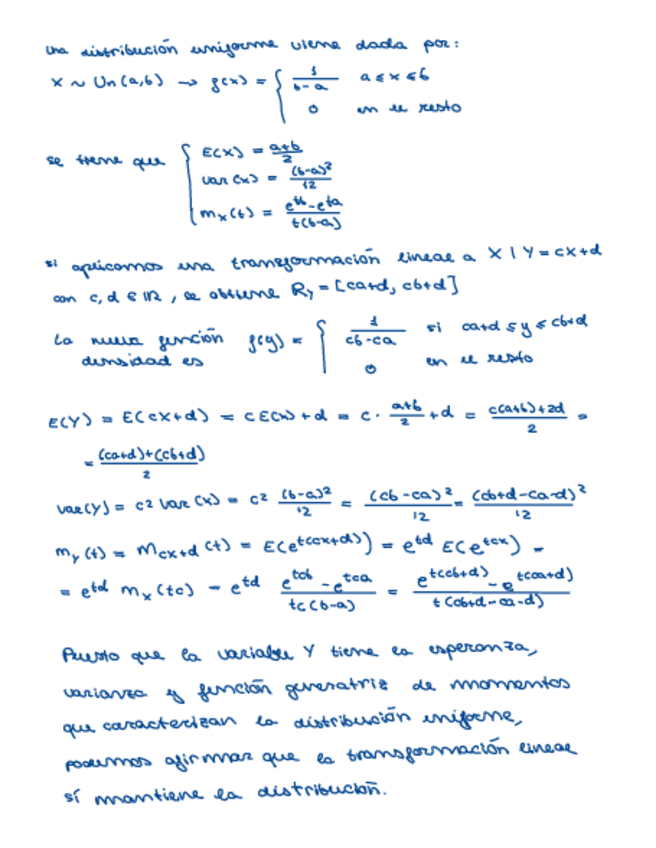 una distribución uniforme viene dada por:
X ~ Un(a,b) → f(x) = { 1/(b-a) a ≤ x ≤ b
0 en el resto
se tiene que { E(X) = (a+b)/2
var(x) = (b-a)²/12
m_x(t) = (e^tb - e^ta)/(t(b-a))
si aplicamos una transformación lineal a X | Y = cX+d
con c, d ∈ ℝ, se obtiene R_Y = [ca+d, cb+d]
La nueva función f(y) = { 1/(cb-ca) si ca+d ≤ y ≤ cb+d
densidad es 0 en el resto
E(Y) = E(cX+d) = c E(X) + d = c · (a+b)/2 + d = (c(a+b)+2d)/2 =
= ((ca+d)+(cb+d))/2
var(Y) = c² var(X) = c² (b-a)²/12 = (cb-ca)²/12 = (cb+d-ca-d)²/12
m_y(t) = m_cx+d(t) = E(e^t(cx+d)) = e^td E(e^tcx) =
= e^td m_x(tc) = e^td (e^tcb - e^tca)/(tc(b-a)) = (e^t(cb+d) - e^t(ca+d))/(t(cb+d-ca-d))
Puesto que la variable Y tiene la esperanza,
varianza y función generatriz de momentos
que caracterizan la distribución uniforme,
podemos afirmar que la transformación lineal
sí mantiene la distribución.